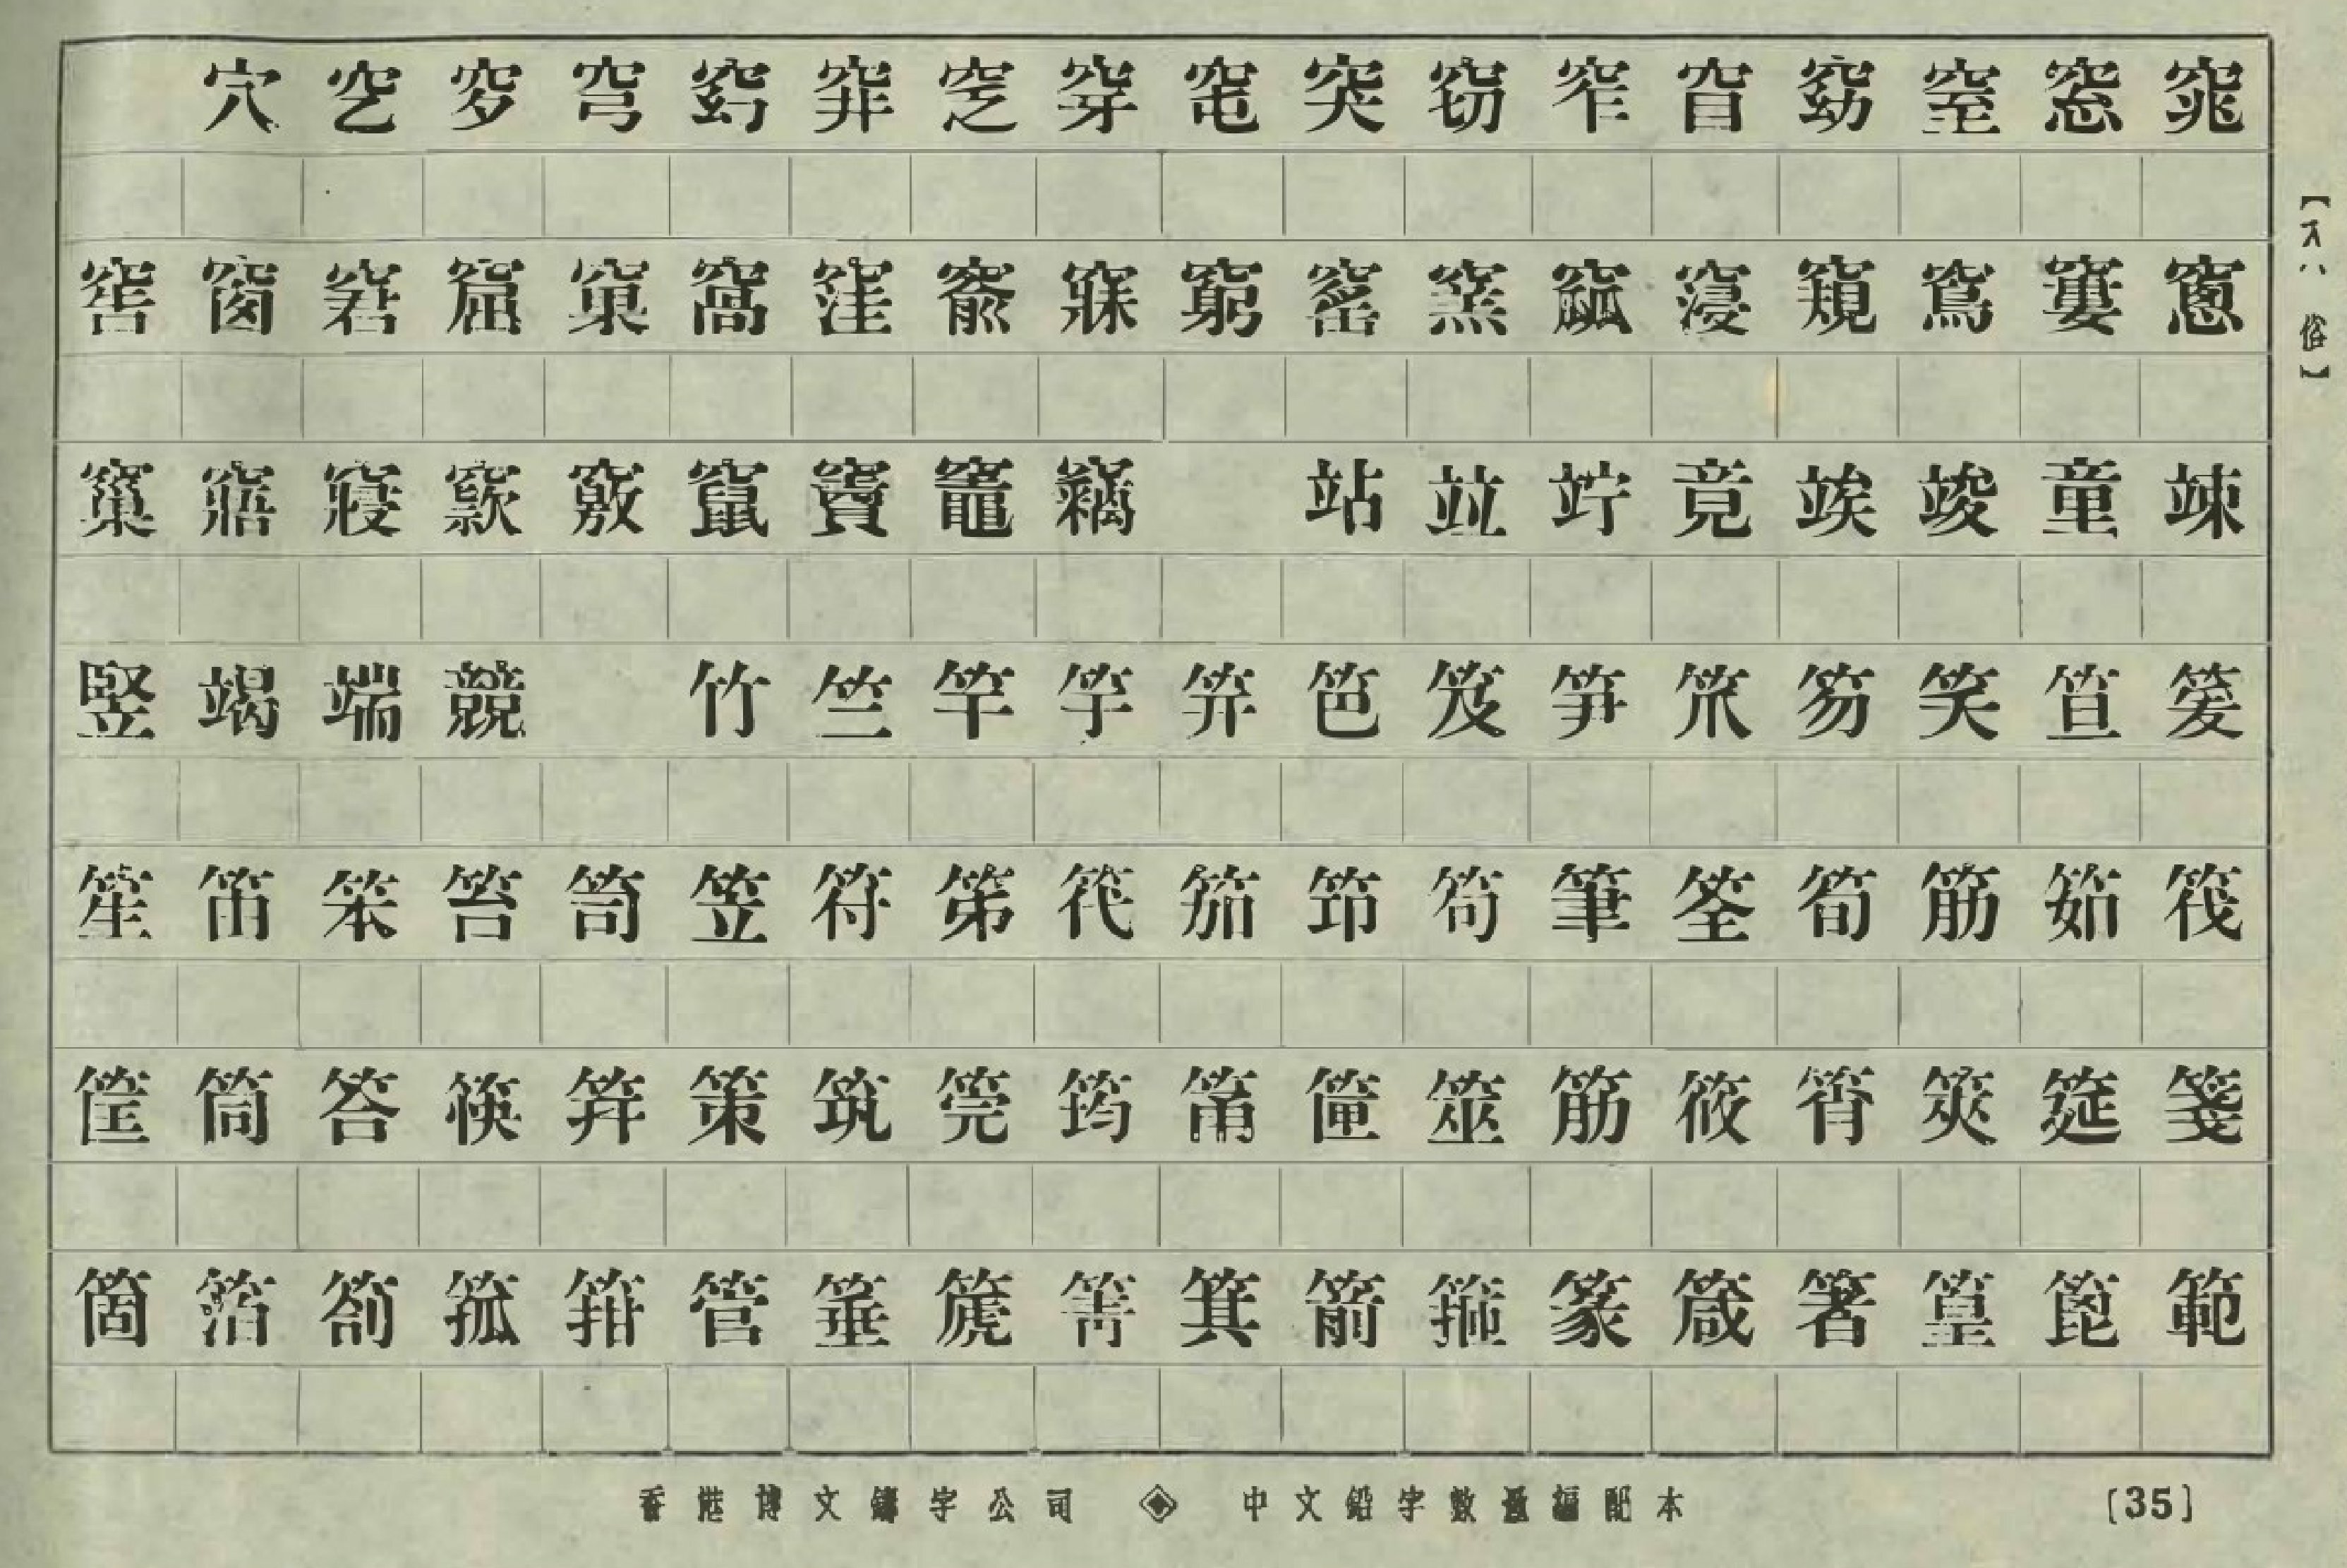 穴穵穸穹穽窆穿窀突窃窄窅窈窒窓窕
窖窗窘窟窠窩窪窬窮窰窯窳窺窵窶窻
窼窹窾竅竄竇竈竊 站竝竚竟竢竣童竦
竪竭端競 竹竺竿竽笄笆笈笋笊笏笑笪
笙笛笨笞笥笠符第笩笳笻笱筆筌筍筋筎筏
筐筒答筷策筑筦筠筩筮筋筱筲筴筵箋
箇箔劄箛箝管箠箎箐箕箭箍篆箴箸篁篦範
香港博文鑄字公司 ◈ 中文鉛字數量編配本
[35]